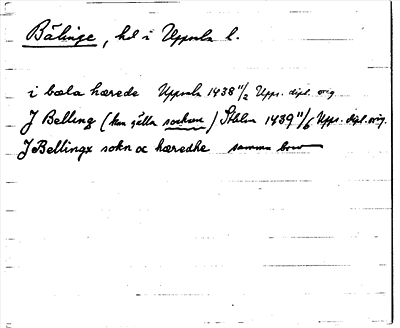 Bälinge, hd i Uppsala l.
i bæla hærede Uppsala 1438 11/2 Upps. dipl. orig.
J Belling (kan gälla socknen) Sthlm 1439 11/6 Upps. dipl. orig.
J Bellingx sokn oc hæredhe samma brev